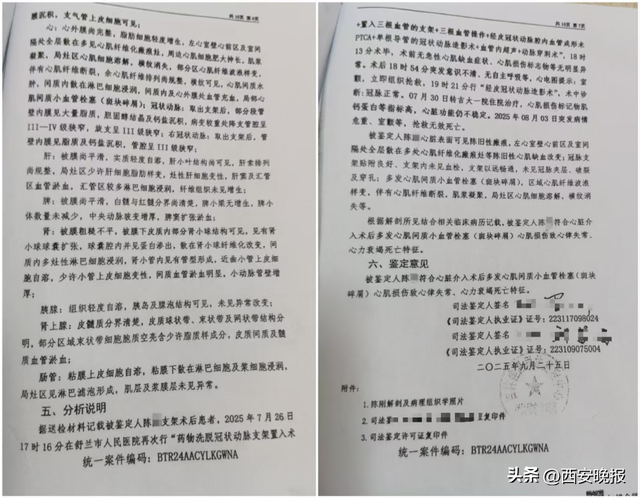 共10页 第6页
膜沉积,支气管上皮细胞可见;
心:心外膜尚完整,脂肪细胞轻度增生,左心室壁心前区及室间
隔处全层散在多见心肌纤维化瘢痕灶,周边心肌细胞肥大伸长,肌浆
凝聚,局灶区心肌细胞溶解、横纹消失,部分区心肌纤维波浪样变、
伴有心肌纤维断裂,余心肌纤维排列尚规整、横纹可见,心肌间质水
肿,间质内散在淋巴细胞浸润,间质内及心外膜处血管充血,局部心
肌间质小血管栓塞(斑块碎屑);冠状动脉:取出支架后,部分段管
壁内膜见大量脂质,胆固醇结晶及钙盐沉积,病变较重处阵支管腔呈
III—IV级狭窄,旋支呈III级狭窄;右冠状动脉:取出支架后,管
壁内膜见脂质及钙盐沉积,管腔呈III级狭窄;
肝:被膜尚平滑,实质轻度自溶,肝小叶结构尚可见,肝索排列
尚规整,局灶区少许肝细胞脂肪样变、灶性肝细胞变性,肝窦及汇管
区血管淤血,汇管区较多淋巴细胞浸润,纤维组织未见增生;
脾:被膜尚平滑,白髓与红髓分界尚清楚,脾小梁无增生,脾小
体数量未减少,中央动脉玻变增厚,脾窦扩张淤血;
肾:被膜粗糙不平,被膜下皮质内部分肾小球结构可见,见有肾
小球球囊扩张,球囊腔内并见蛋白渗出,散在肾小球纤维化改变,间
质内多灶性淋巴细胞浸润,肾小管内见有管型形成,近曲小管上皮细
胞自溶,少许小管上皮细胞变性,间质血管淤血明显,小动脉管壁增
厚;
胰腺:组织轻度自溶,胰岛及腺泡结构可见,未见异常改变;
肾上腺:皮髓质分界清楚,皮质球状带、束状带及网状带结构分
明,部分区域束状带细胞胞质空亮含少许脂质样成分,皮质间质及髓
质血管淤血;
肠管:粘膜上皮自溶,粘膜下散在淋巴细胞及浆细胞浸润,
局灶区见淋巴滤泡形成,肌层及浆膜层未见异常。
五、分析说明
据送检材料记载被鉴定人陈 支架术后患者,2025年7月26日
17时16分在舒兰市人民医院再次行“药物洗脱冠状动脉支架置入术
统一案件编码:BTR24AACYLKGWNA
共10页 第7页
+置入三根血管的支架+三根血管操作+经皮冠状动脉腔内血管成形术
PTCA+单根导管的冠状动脉造影术+血管内超声+动脉穿刺术”,18时
13分术毕。术前无急性心肌缺血症状、心肌损伤标志物等无明显异
常。术后18时54分突发意识不清、无自主呼吸等,心电图提示:室
颤,立即组织抢救,19时21分行“经皮冠状动脉造影术”,术中诊
断:冠脉正常。07月30日转吉大一院住院治疗,心肌损伤标记物肌
钙蛋白等指标高,心脏功能仍不稳定,2025年08月03日突发病情
危重、室颤等,抢救无效死亡。
被鉴定人陈 心脏表面可见陈旧性瘢痕,左心室壁心前区及室
间隔处全层散在多处心肌纤维化瘢痕灶等陈旧性心肌缺血改变;冠脉
支架贴附良好、支架内未见血栓、支架以远畅通,未见冠脉夹层、破裂
及穿孔;多发心肌间质小血管栓塞(斑块碎屑),区域心肌纤维波浪
样变、伴有心肌纤维断裂,肌浆凝聚,局灶区心肌细胞溶解、横纹消
失等。
根据解剖所见结合相关临床病历记载,被鉴定人陈 符合心脏介
入术后多发心肌间质小血管栓塞(斑块碎屑)心肌损伤致心律失常、
心力衰竭死亡特征。
六、鉴定意见
被鉴定人陈 符合心脏介入术后多发心肌间质小血管栓塞(斑块
碎屑)心肌损伤致心律失常、心力衰竭死亡特征。
司法鉴定人签名
《司法鉴定人执业证》证号:223117098024
司法鉴定人签名
《司法鉴定人执业证》证号:223109075004
二〇二五年九月二十五日
附件:
1.陈刚解剖及病理组织学照片
2.司法鉴定 复印件
3.司法鉴定许可证复印件
统一案件编码:BTR24AACYLKGWNA
头条 @西安晚报